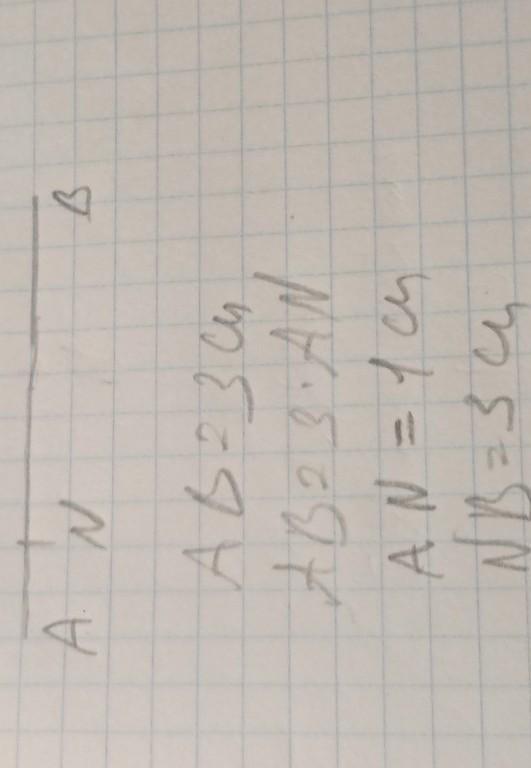 A N B
AB = 3 см
AB = 3 · AN
AN = 1 см
NB = 3 см